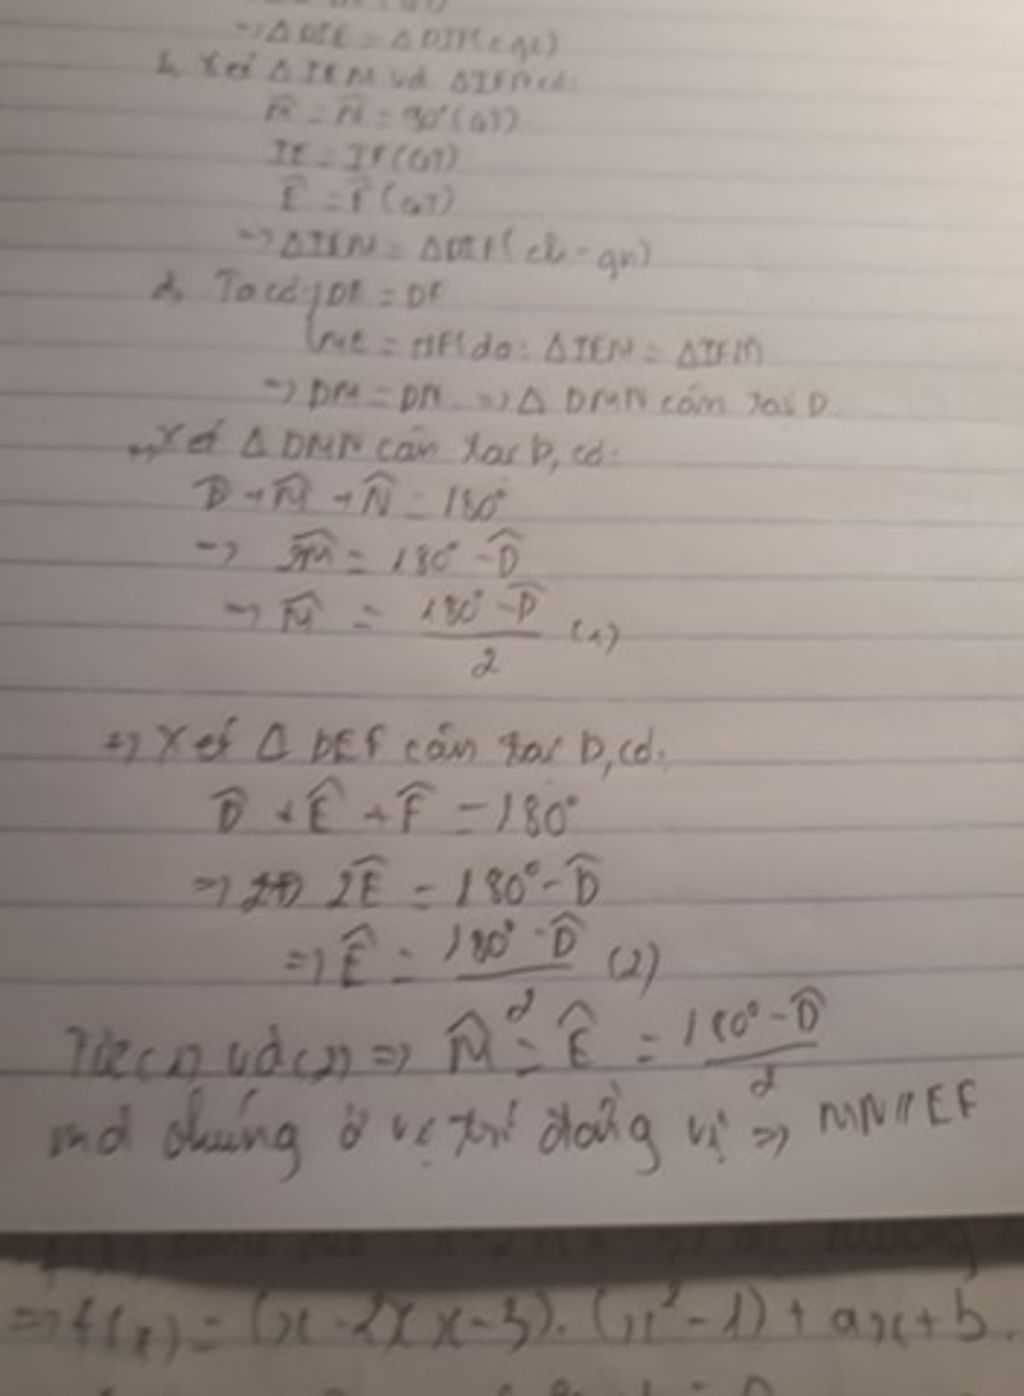 ⇒ ΔDIE = ΔDIF (cgc)
b, Xét ΔIEM và ΔIFN có:
M̂ = N̂ = 90° (GT)
IE = IF (GT)
Ê = F̂ (GT)
⇒ ΔIEM = ΔDIF (ch - gn)
d, Ta có { DE = DF
ME = NF (do: ΔIEN = ΔIFM
⇒ DM = DN ⇒ Δ DMN cân tại D
Xét Δ DMN cân tại D, có:
D̂ + M̂ + N̂ = 180°
⇒ 2M̂ = 180° - D̂
⇒ M̂ = (180° - D̂)/2 (1)
+) Xét Δ DEF cân tại D, có:
D̂ + Ê + F̂ = 180°
⇒ 2Ê = 180° - D̂
⇒ Ê = (180° - D̂)/2 (2)
Từ (1) và (2) ⇒ M̂ = Ê = (180° - D̂)/2
mà chúng ở vị trí đồng vị ⇒ MN // EF
⇒ f(x) = (x - 2)(x - 3). (x² - 1) + ax + b.